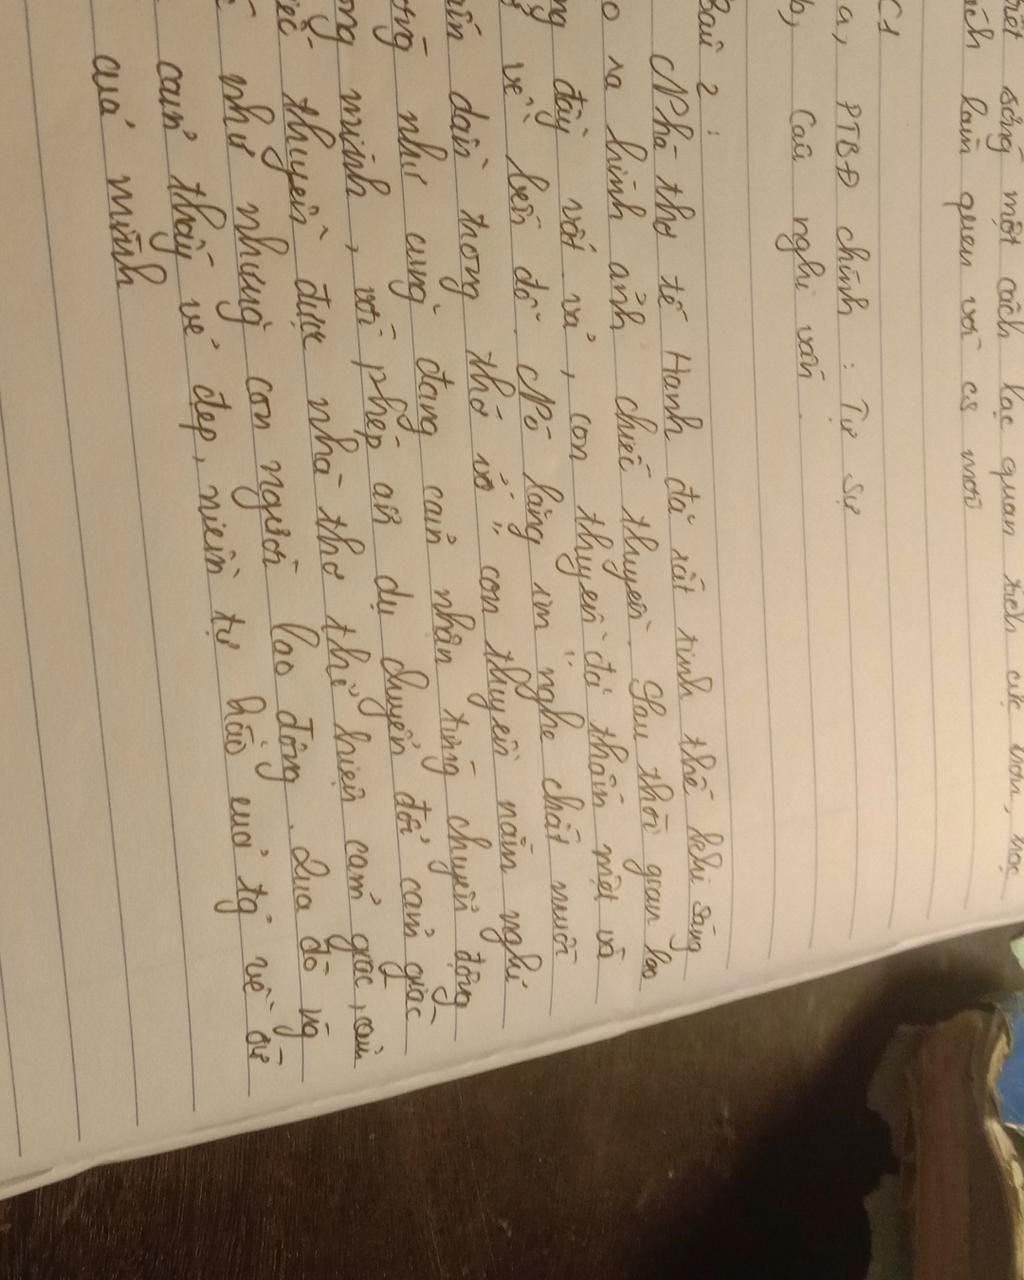 sống một cách lạc quan tích cực hơn, học
cách làm quen với cs mới
C1
a, PTBĐ chính : Tự sự
b, Câu nghi vấn.
Bài 2 :
Nhà thơ tế Hanh đã rất tinh thế khi sáng
ra hình ảnh chiếc thuyền. Sau thời gian lao
đầy vất vả, con thuyền đã thấm mệt và
về bến đỗ. Nó lặng im "nghe chất muối
dần trong thớ vỏ", con thuyền nằm nghỉ
như cũng đang cảm nhận từng chuyển động
mình, với phép ẩn dụ chuyển đổi cảm giác
thuyền được nhà thơ thể hiện cảm giác, cảm
như những con người lao động. Qua đó ng
cảm thấy vẻ đẹp, niềm tự hào của tg về
của mình